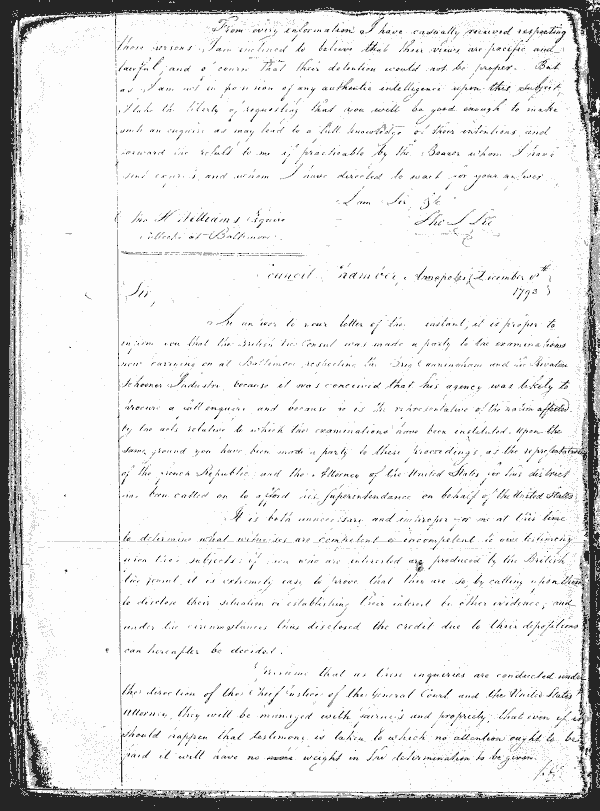 From every information I have casually received respecting
these persons I am inclined to believe that their views are pacific and
lawful, and of course that their detention would not be proper. But
as I am not in possession of any authentic intelligence upon this subject,
I take the liberty of requesting that you will be good enough to make
such an enquiry as may lead to a full knowledge of their intentions, and
forward the result to me if practicable by the Bearer whom I have
sent express, and whom I have directed to wait for your answer
I am Sir, &c
Tho S Lee
H Williams Esquire
at Baltimore
Council Chamber, Annapolis December
1793
Sir,
In answer to your letter of the instant, it is proper to
inform you that the British Vice Consul was made a party to the examinations
now carrying on at Baltimore respecting the Brig Cunningham and the Privateer
Schooner Industry because it was conceived that his agency was likely to
procure a full enquiry and because he is the representative of the nation affected
by the acts relative to which the examinations have been instituted. Upon the
same ground you have been made a party to these proceedings, as the representative
of the French Republic, and the Attorney of the United States for this district
has been called on to afford his Superintendance on behalf of the United States
It is both unnecessary and improper for me at this time
to determine what witnesses are competent or incompetent to give testimony
upon these subjects: if men who are interested are produced by the British
Vice Consul, it is extremely easy to prove that they are so, by calling upon them
to disclose their situation or establishing their interest by other evidence, and
under the circumstances thus disclosed the credit due to their depositions
can hereafter be decided.
I presume that as these enquiries are conducted under
the direction of the Chief Justice of the General Court and the United States
Attorney, they will be managed with fairness and propriety; that even if it
should happen that testimony is taken to which no attention ought to be
paid it will have no weight in the determination to be given.